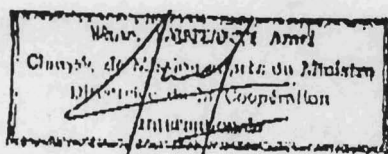 Amel
Chargée de Mission auprès du Ministre
Direction de la Coopération
Internationale